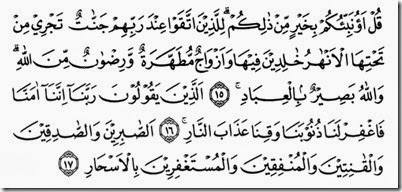 قُلْ أَؤُنَبِّئُكُمْ بِخَيْرٍ مِّنْ ذَٰلِكُمْ ۗ لِلَّذِيْنَ اتَّقَوْا عِنْدَ رَبِّهِمْ جَنّٰتٌ تَجْرِيْ مِنْ
تَحْتِهَا الْاَنْهٰرُ خٰلِدِيْنَ فِيْهَا وَاَزْوَاجٌ مُّطَهَّرَةٌ وَّرِضْوَانٌ مِّنَ اللّٰهِ ۗ
وَاللّٰهُ بَصِيْرٌۢ بِالْعِبَادِ ۚ ﴿١٥﴾ اَلَّذِيْنَ يَقُوْلُوْنَ رَبَّنَآ اِنَّنَآ اٰمَنَّا
فَاغْفِرْ لَنَا ذُنُوْبَنَا وَقِنَا عَذَابَ النَّارِ ۚ ﴿١٦﴾ اَلصّٰبِرِيْنَ وَالصّٰدِقِيْنَ
وَالْقٰنِتِيْنَ وَالْمُنْفِقِيْنَ وَالْمُسْتَغْفِرِيْنَ بِالْاَسْحَارِ ﴿١٧﴾